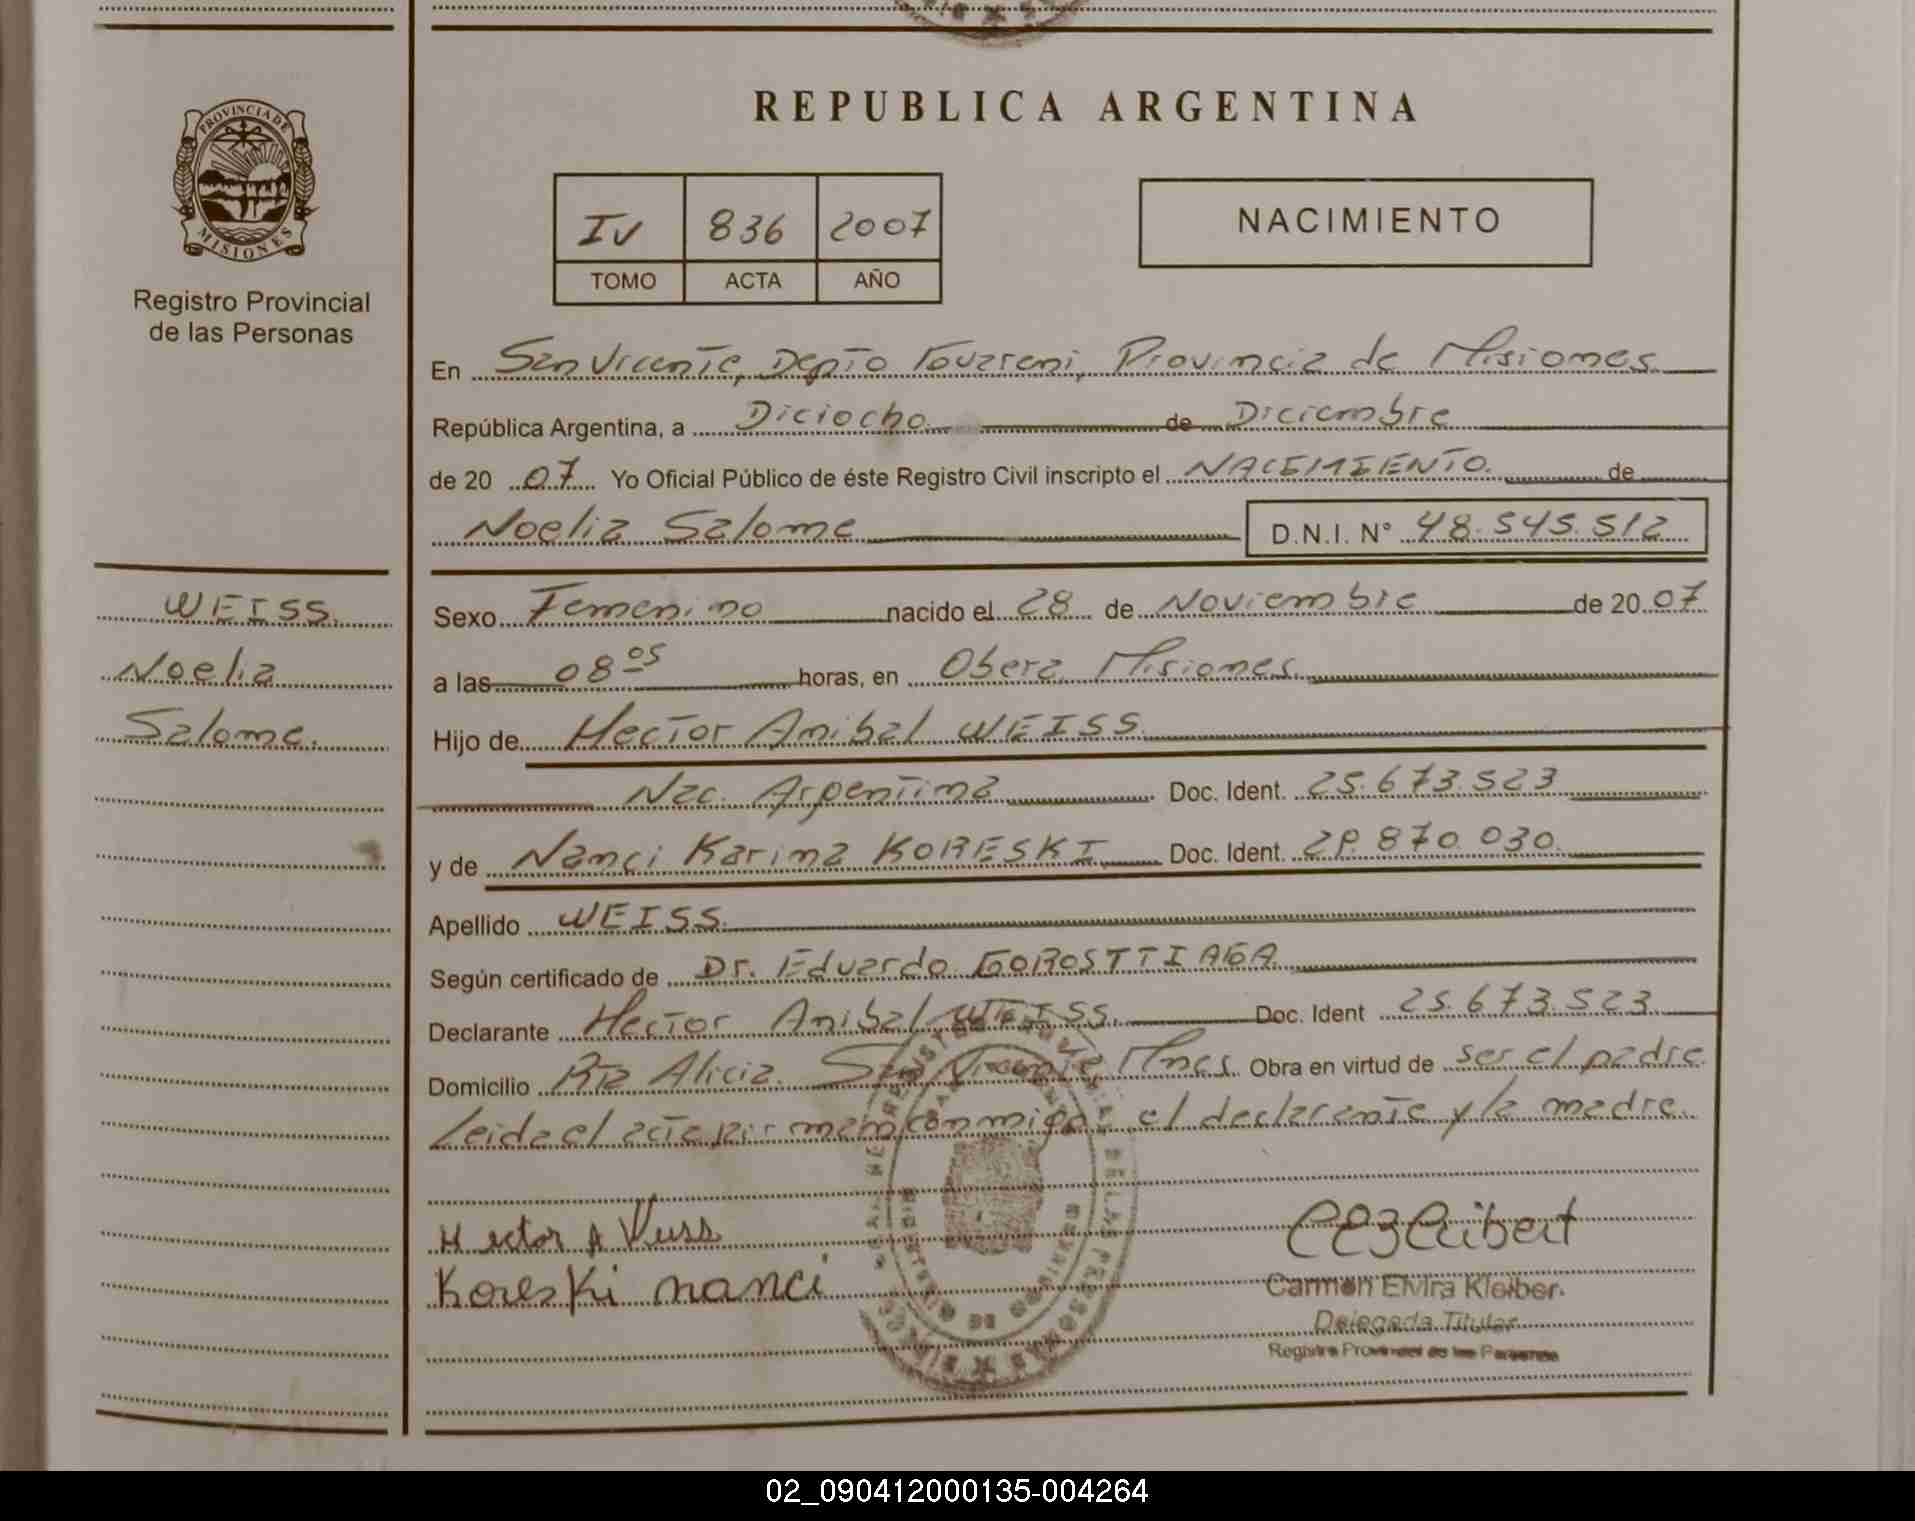 REPUBLICA ARGENTINA
PROVINCIA DE
MISIONES
Registro Provincial
de las Personas
IV 836 2007
TOMO ACTA AÑO
NACIMIENTO
En San Vicente, Depto Guarani, Provincia de Misiones
República Argentina, a Diciocho de Diciembre
de 20 07 Yo Oficial Público de éste Registro Civil inscripto el NACIMIENTO. de
Noelia Salome D.N.I. N° 48.545.512
WEISS.
Noelia
Salome.
Sexo Femenino nacido el 28 de Noviembre de 20 07
a las 08 05 horas, en Obera, Misiones.
Hijo de Hector Anibal WEISS.
Nac. Argentina Doc. Ident. 25.673.523
y de Nanci Karina KORESKI Doc. Ident. 870.030
Apellido WEISS.
Según certificado de Dr. Eduardo GOROSTTIAGA
Declarante Hector Anibal WEISS. Doc. Ident 25.673.523
Domicilio Pta Alicia. San Vicente, Mnes. Obra en virtud de ser el padre
Leida el acta firman conmigo, el declarante y la madre.
Hector A Weiss
Koreski nanci
Carmen Elvira Kleiber
Delegada Titular
Registro Provincial de las Personas
02_090412000135-004264